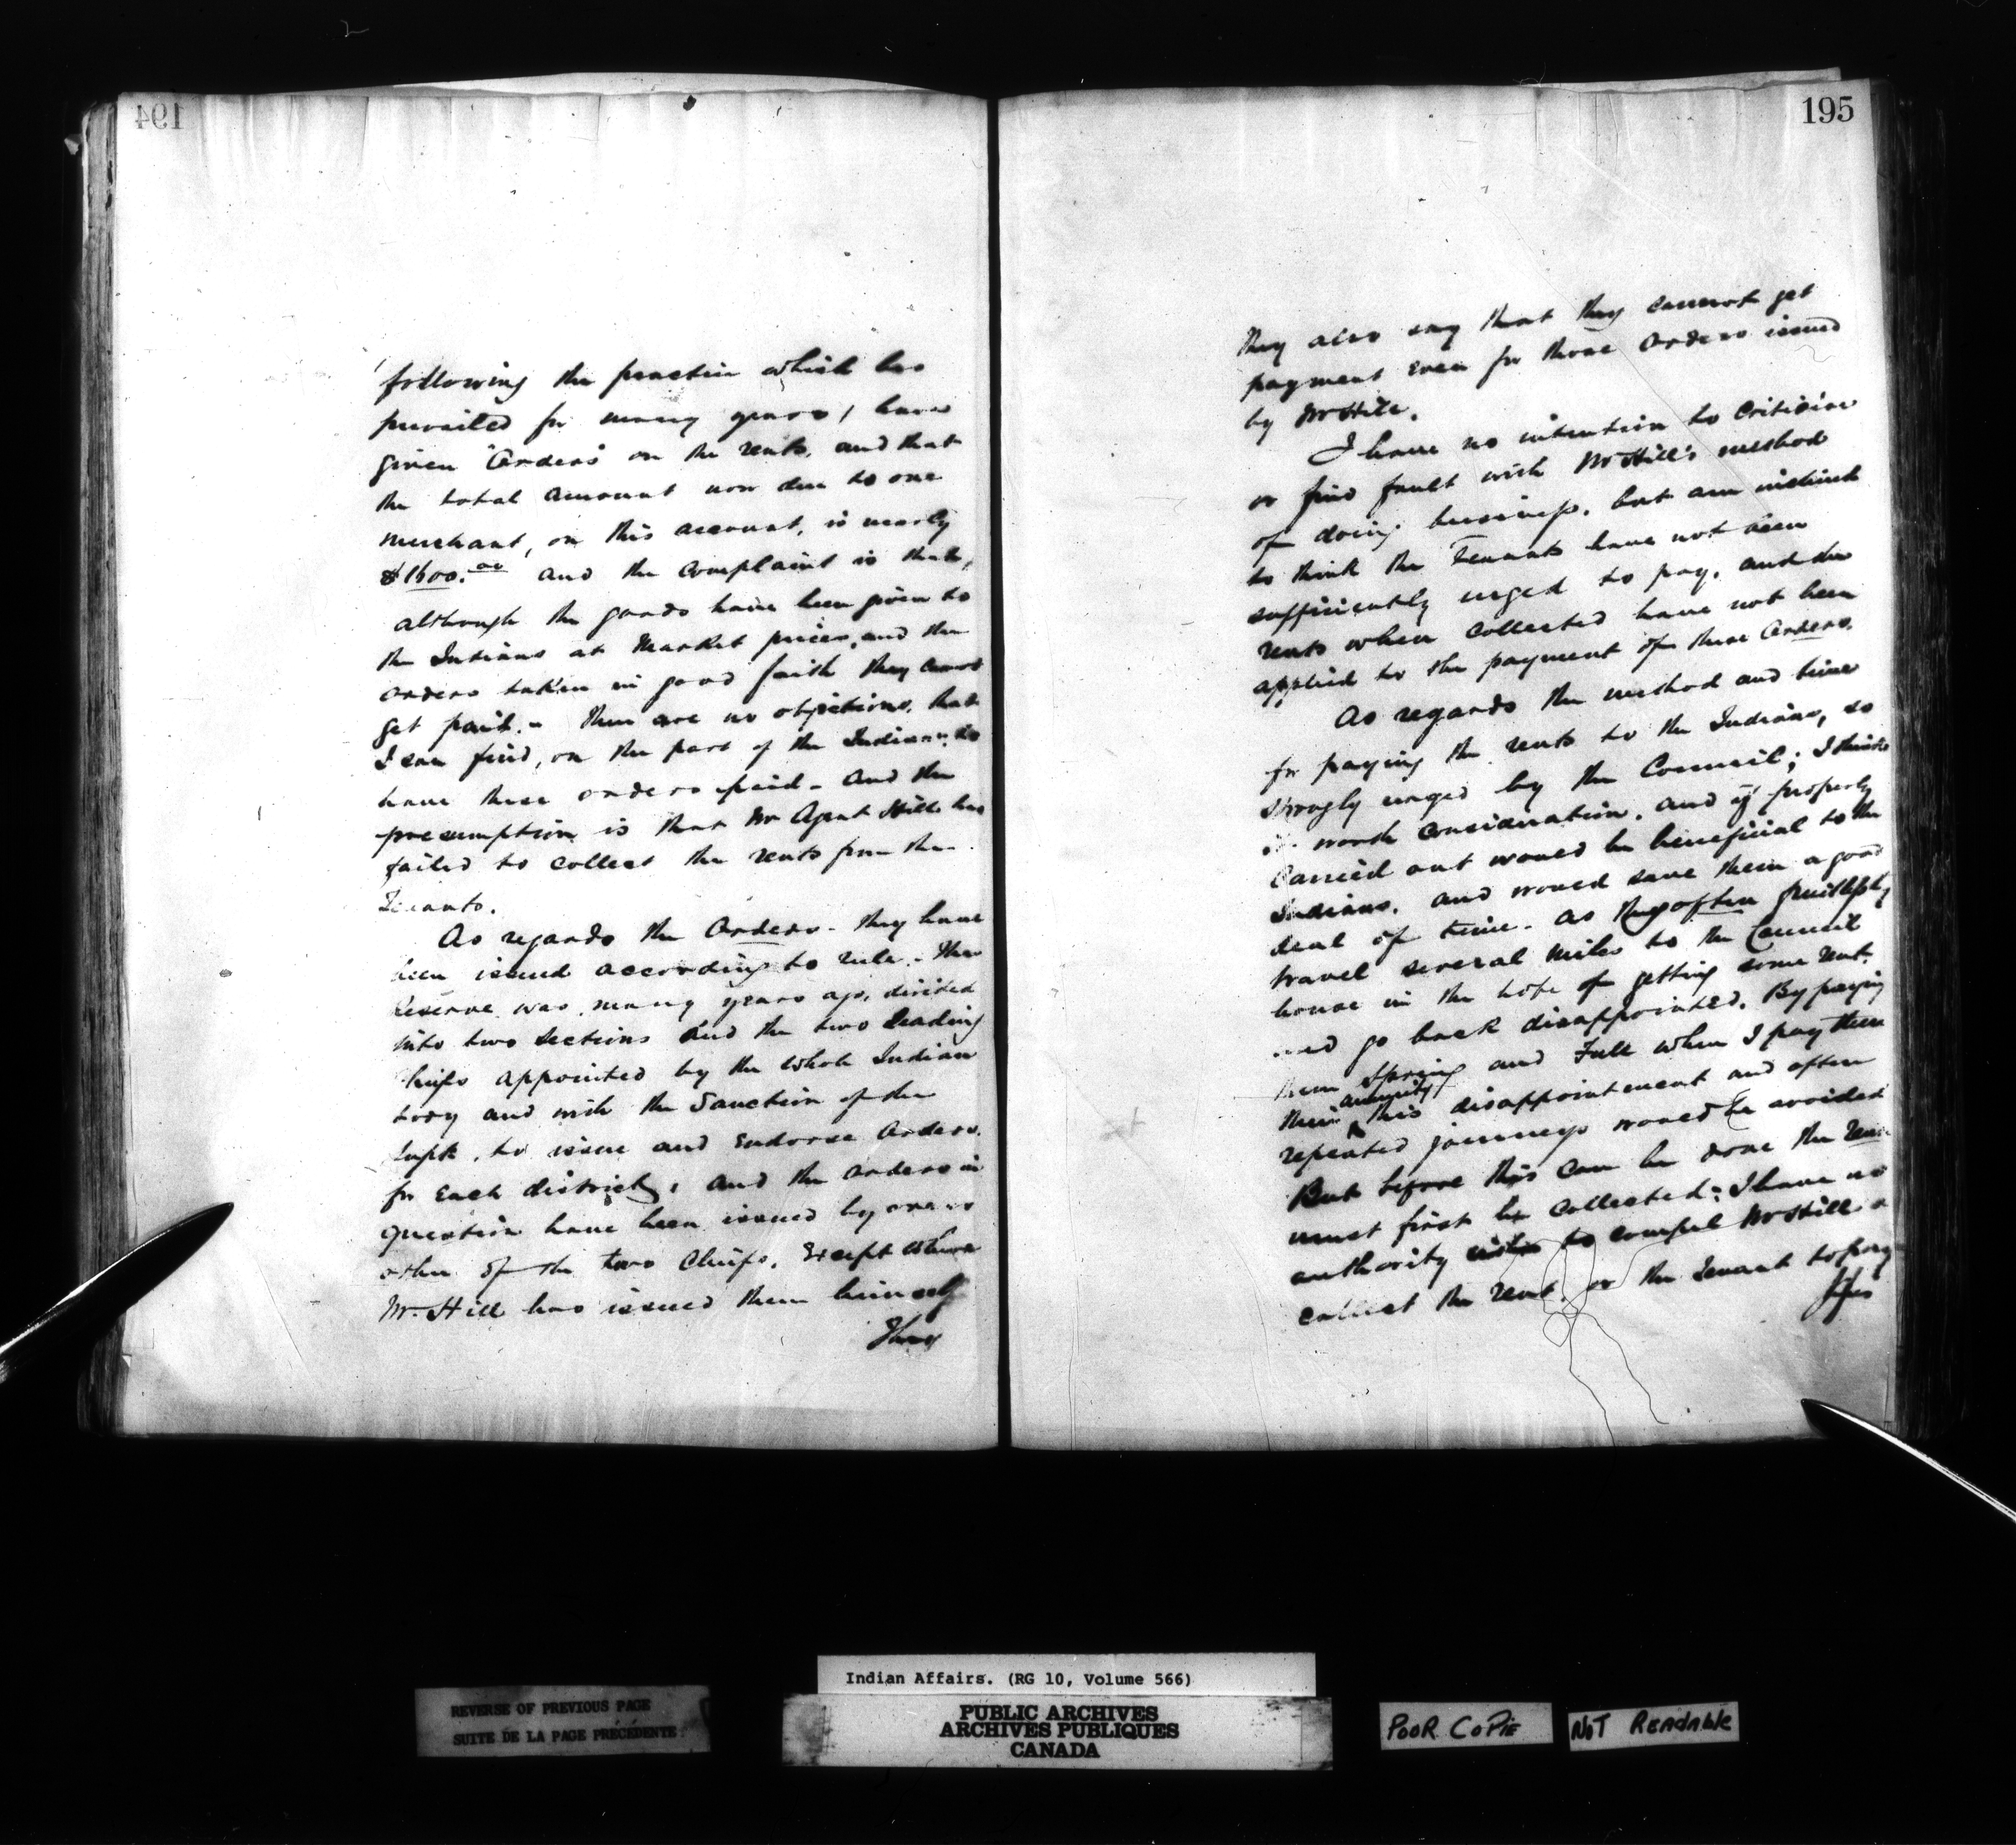 194
following the practice which has
prevailed for many years, have
given "Orders" on the rents, and that
the total amount now due to one
merchant, on this account, is nearly
$1600.00 and the complaint is that,
although the goods have been given to
the Indians at Market prices, and the
orders taken in good faith they cannot
get paid. - There are no objections, that
I can find, on the part of the Indians, to
have these orders paid - and the
presumption is that Mr Agent Hill has
failed to collect the rents from the
Tenants.
As regards the Orders - they have
been issued according to rule. - The
Reserve was, many years ago, divided
into two sections and the two leading
Chiefs appointed by the whole Indian
body and with the Sanction of the
Supt. to issue and endorse Orders.
for each district, and the orders in
question have been issued by one or
other of the two Chiefs, Except where
Mr. Hill has issued them himself
They
195
They also say that they cannot get
payment even for those Orders issued
by Mr Hill.
I have no intention to Criticise
or find fault with Mr Hill's method
of doing business, but am inclined
to think the Tenants have not been
sufficiently urged to pay, and the
rents when collected have not been
applied to the payment of these Orders.
As regards the method and time
for paying the rents to the Indians, so
strongly urged by the Council; I think
is worth consideration, and if properly
Carried out would be beneficial to the
Indians, and would save them a good
deal of time - as they often fruitlessly
travel several miles to the Council
house in the hope of getting some rent.
and go back disappointed. By paying
them Spring and Fall when I pay them
their annuity this disappointment and often
repeated journeys would be avoided
But before this can be done the rents
must first be collected; I have no
authority to compel Mr Hill to
collect the rent, or the tenant to pay
Indian Affairs. (RG 10, Volume 566)
REVERSE OF PREVIOUS PAGE
SUITE DE LA PAGE PRÉCÉDENTE
PUBLIC ARCHIVES
ARCHIVES PUBLIQUES
CANADA
POOR COPIE
NOT READABLE